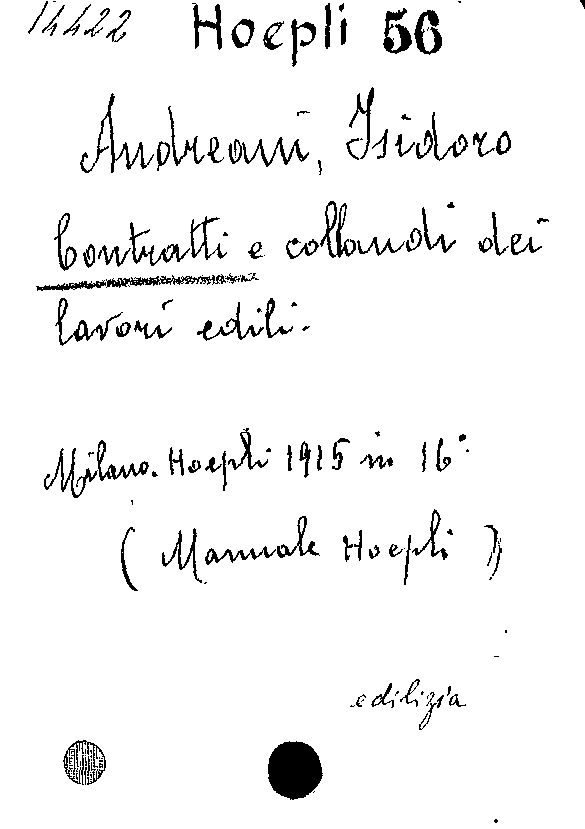 14422 Hoepli 56
Andreani, Isidoro
Contratti e collaudi dei
lavori edili.
Milano. Hoepli 1915 in 16°
(Manuale Hoepli)
edilizia